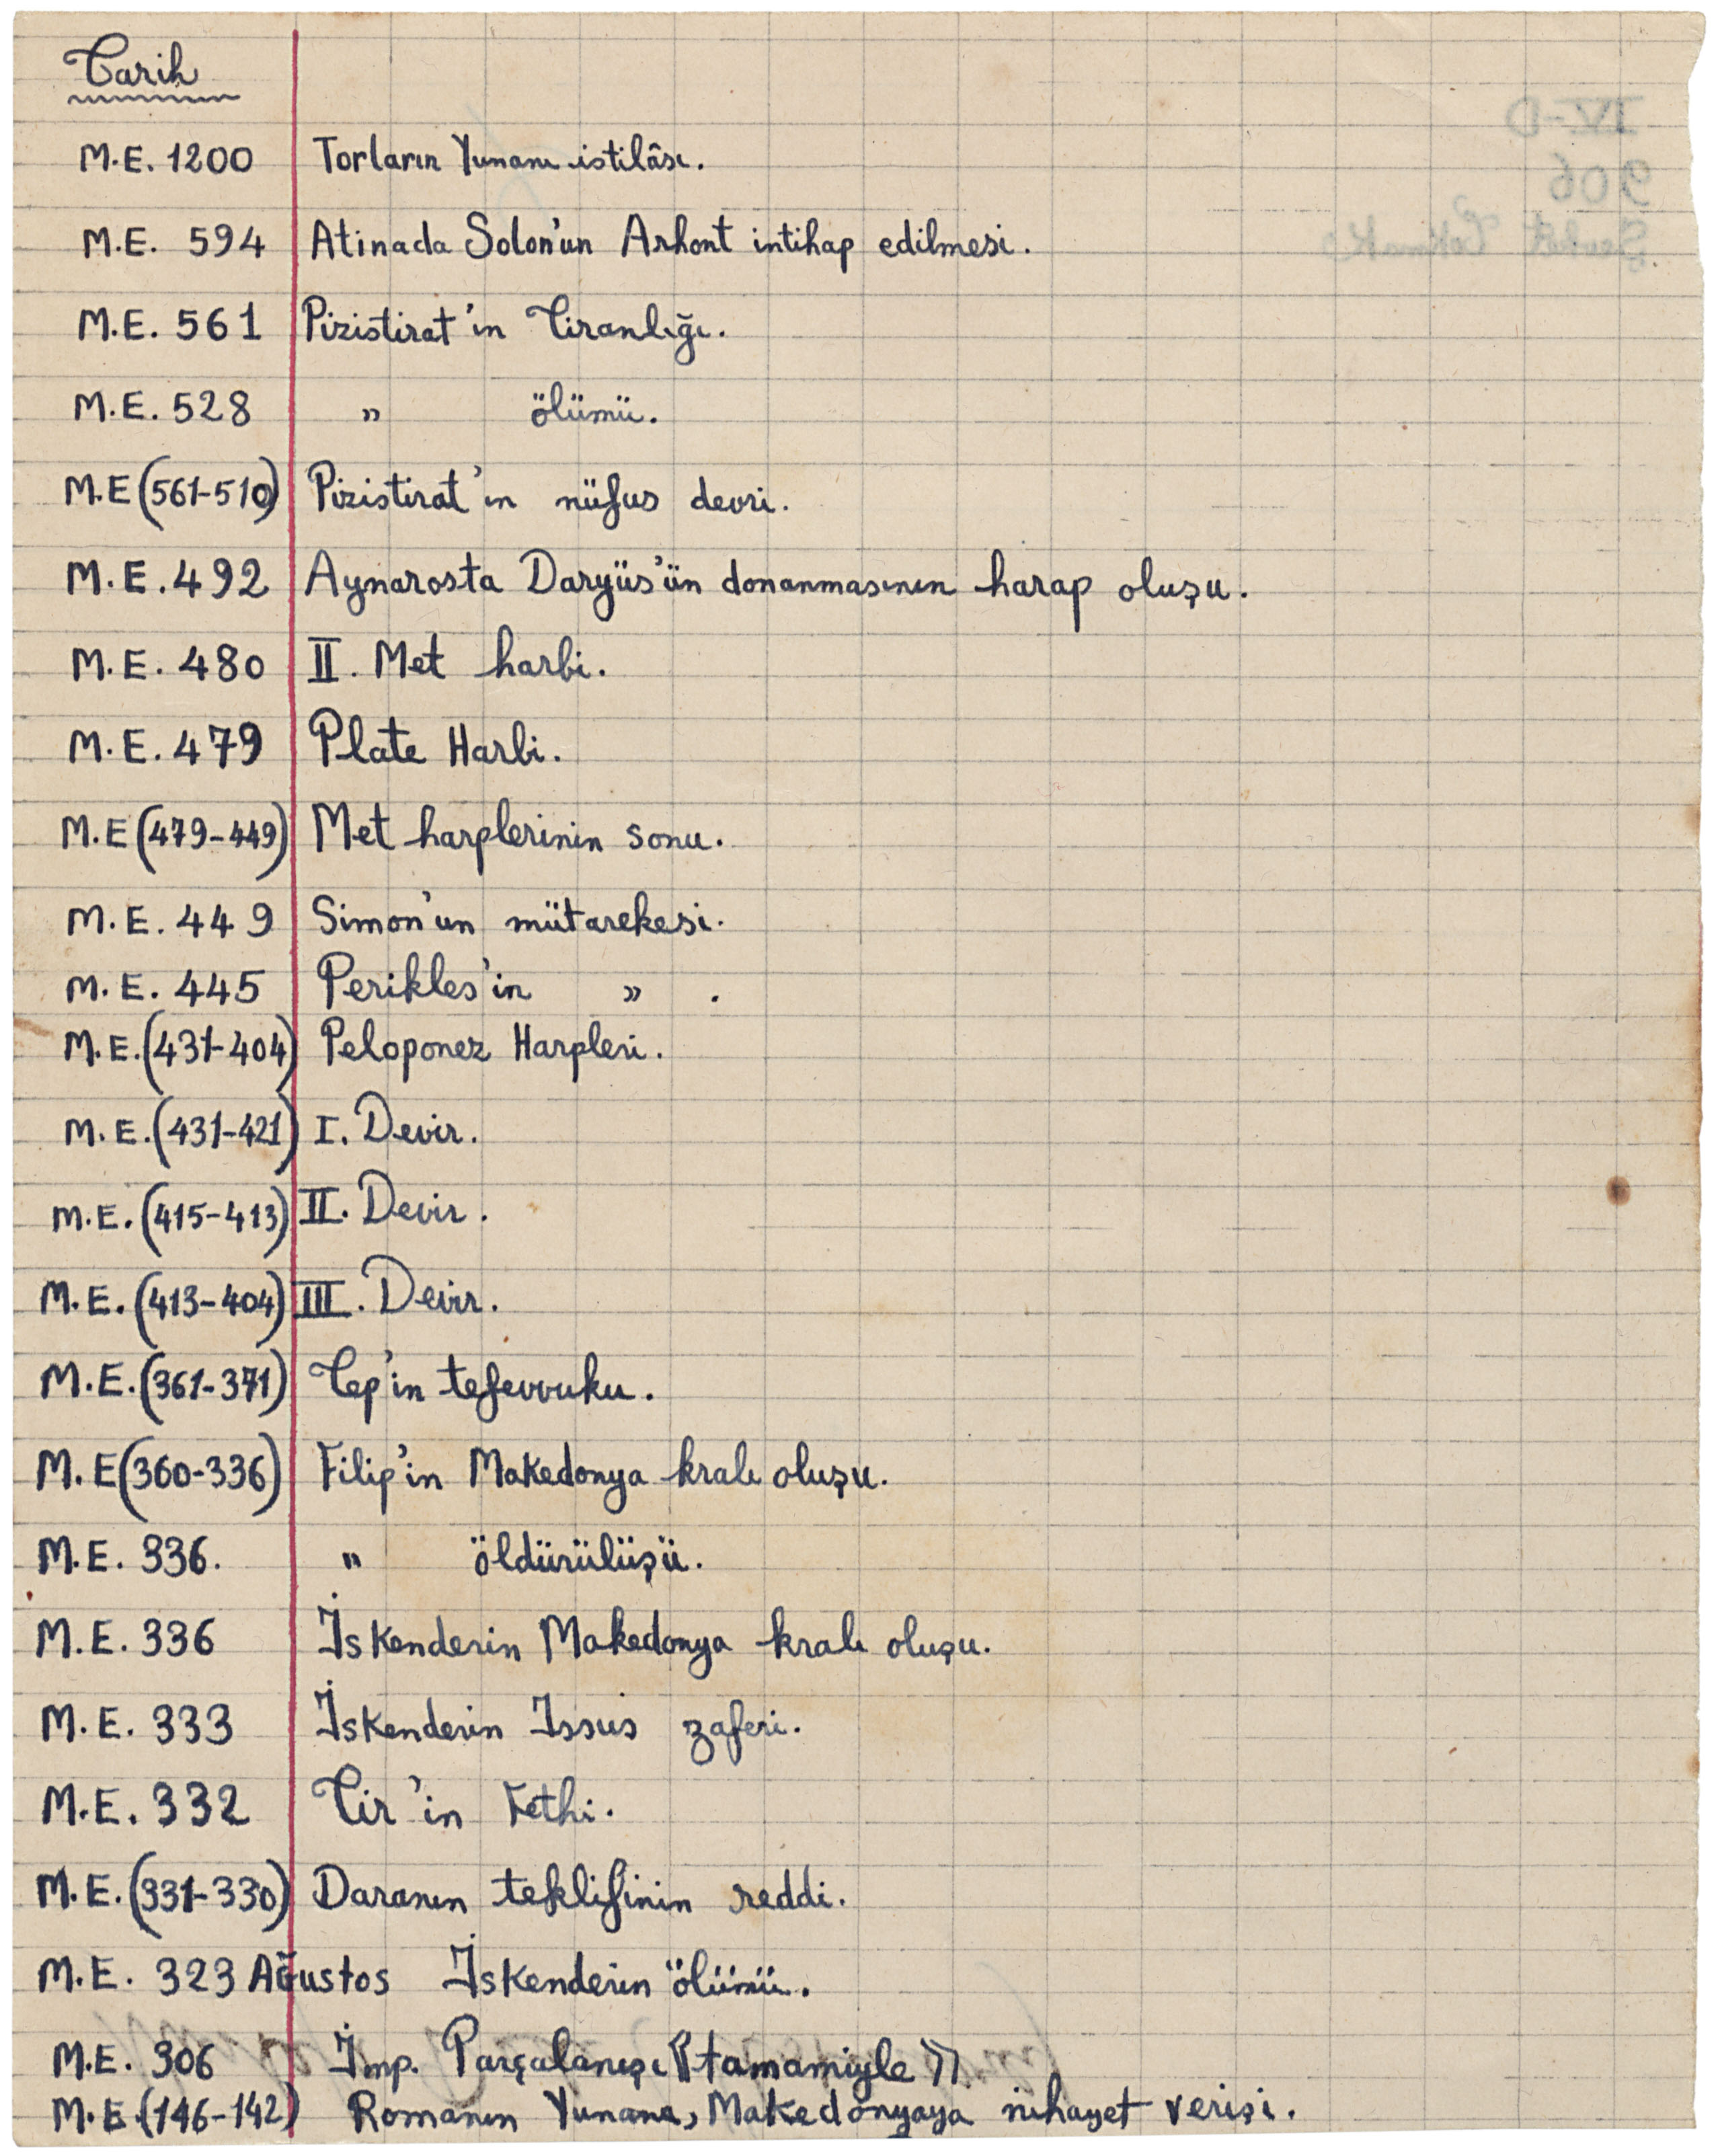 Tarih
M.E. 1200 Torların Yunanı istilâsı.
M.E. 594 Atinada Solon'un Arhont intihap edilmesi.
M.E. 561 Pizistirat'ın Tiranlığı.
M.E. 528 " ölümü.
M.E (561-510) Pizistirat'ın nüfus devri.
M.E. 492 Aynarosta Daryüs'ün donanmasının harap oluşu.
M.E. 480 II. Met harbi.
M.E. 479 Plate Harbi.
M.E (479-449) Met harplerinin sonu.
M.E. 449 Simon'un mütarekesi.
M.E. 445 Perikles'in " .
M.E. (431-404) Peloponez Harpleri.
M.E. (431-421) I. Devir.
M.E. (415-413) II. Devir.
M.E. (413-404) III. Devir.
M.E. (361-371) Tep'in tefevvuku.
M.E (360-336) Filip'in Makedonya kralı oluşu.
M.E. 336. " öldürülüşü.
M.E. 336 İskenderin Makedonya kralı oluşu.
M.E. 333 İskenderin Issus zaferi.
M.E. 332 Tir'in Fethi.
M.E. (331-330) Daranın teklifinin reddi.
M.E. 323 Ağustos İskenderin ölümü.
M.E. 306 İmp. Parçalanışı «tamamiyle»
M.E. (146-142) Romanın Yunana, Makedonyaya nihayet verişi.
IV-D
906